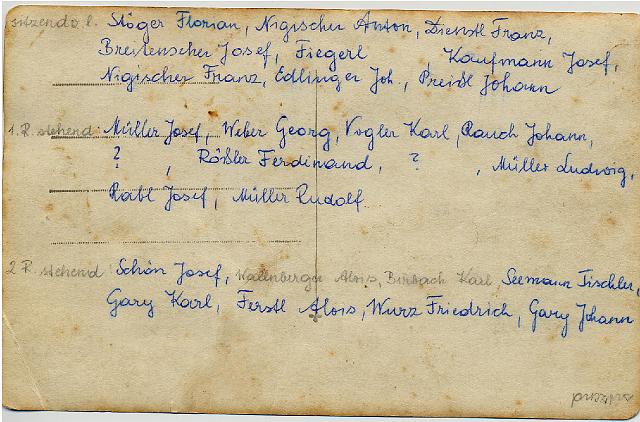 sitzend v. l. Stöger Florian, Nigischer Anton, Dienstl Franz,
Breitenseher Josef, Fiegerl , Kaufmann Josef,
Nigischer Franz, Edlinger Joh., Preidl Johann
1. R. stehend: Müller Josef, Weber Georg, Vogler Karl, Rauch Johann,
? , Rößler Ferdinand, ? , Müller Ludwig,
Rabl Josef, Müller Rudolf
2 R. stehend: Schön Josef, Wallenberger Alois, Birbach Karl, Seemann Tischler,
Gary Karl, Ferstl Alois, Wurz Friedrich, Gary Johann